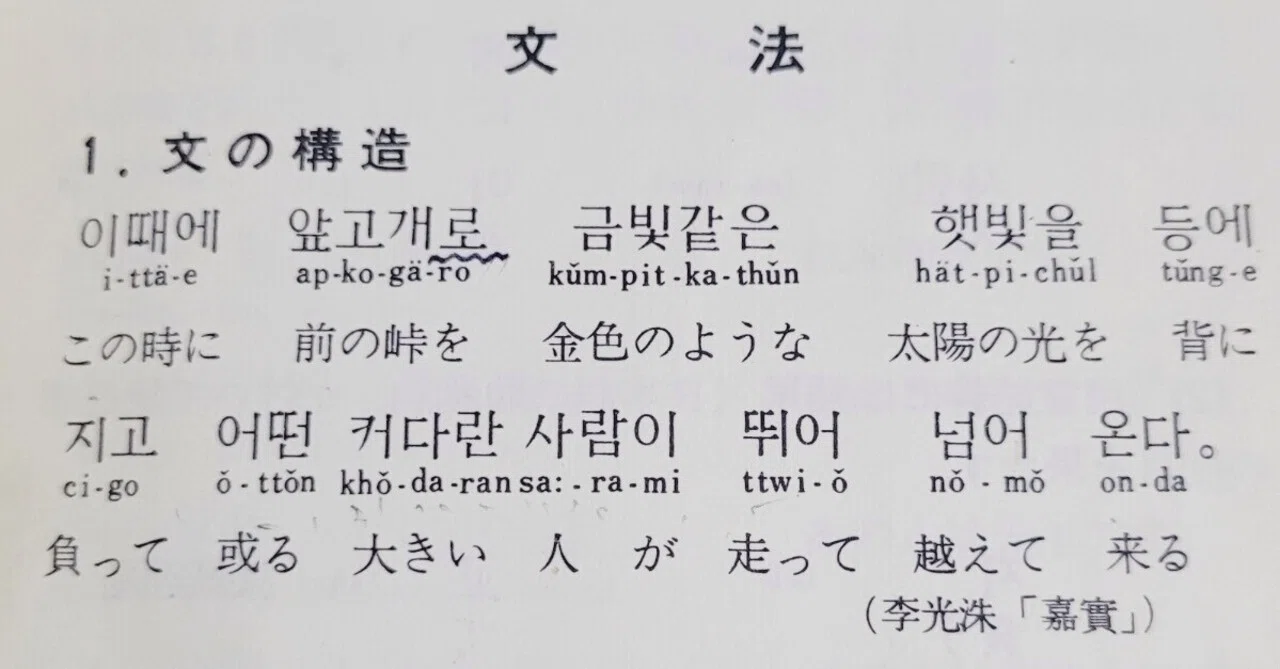 文 法
1. 文の構造
이때에 앞고개로 금빛같은 햇빛을 등에
i-ttä-e ap-ko-gä-ro kŭm-pit-ka-thŭn hät-pi-chŭl tŭng-e
この時に 前の峠を 金色のような 太陽の光を 背に
지고 어떤 커다란 사람이 뛰어 넘어 온다。
ci-go ŏ-ttŏn khŏ-da-ran sa:-ra-mi ttwi-ŏ nŏ-mŏ on-da
負って 或る 大きい 人 が 走って 越えて 来る
(李光洙「嘉實」)